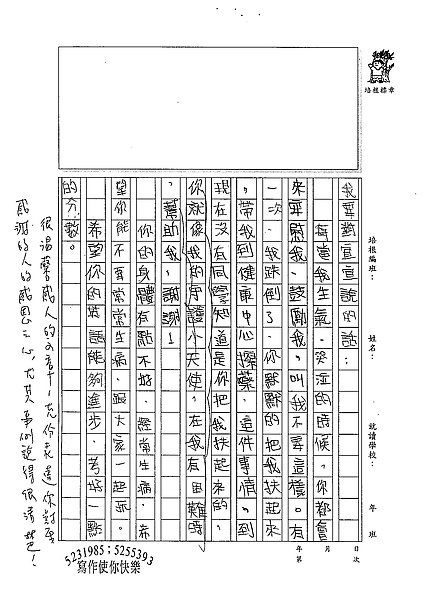 培根標章
培根編班：
姓名：
就讀學校：
年 班
年 月 日
第 次
我要對宣宣說的話：
每當我生氣、哭泣的時候，你都會
來安慰我、鼓勵我，叫我不要這樣。有
一次，我跌倒了，你默默的把我扶起來
，帶我到健康中心擦藥，這件事情，到
現在沒有同學知道是你把我扶起來的，
你就像我的守護小天使，在我有困難時
，幫助我，謝謝！
你的身體有點不好，經常生病，希
望你能不要常常生病，跟大家一起玩。
希望你的英語能夠進步，考好一點
的分數。
很溫馨感人的文章，充份表達你對要
感謝的人的感恩之心，尤其事例說得很清楚！
5231985；5255393
寫作使你快樂